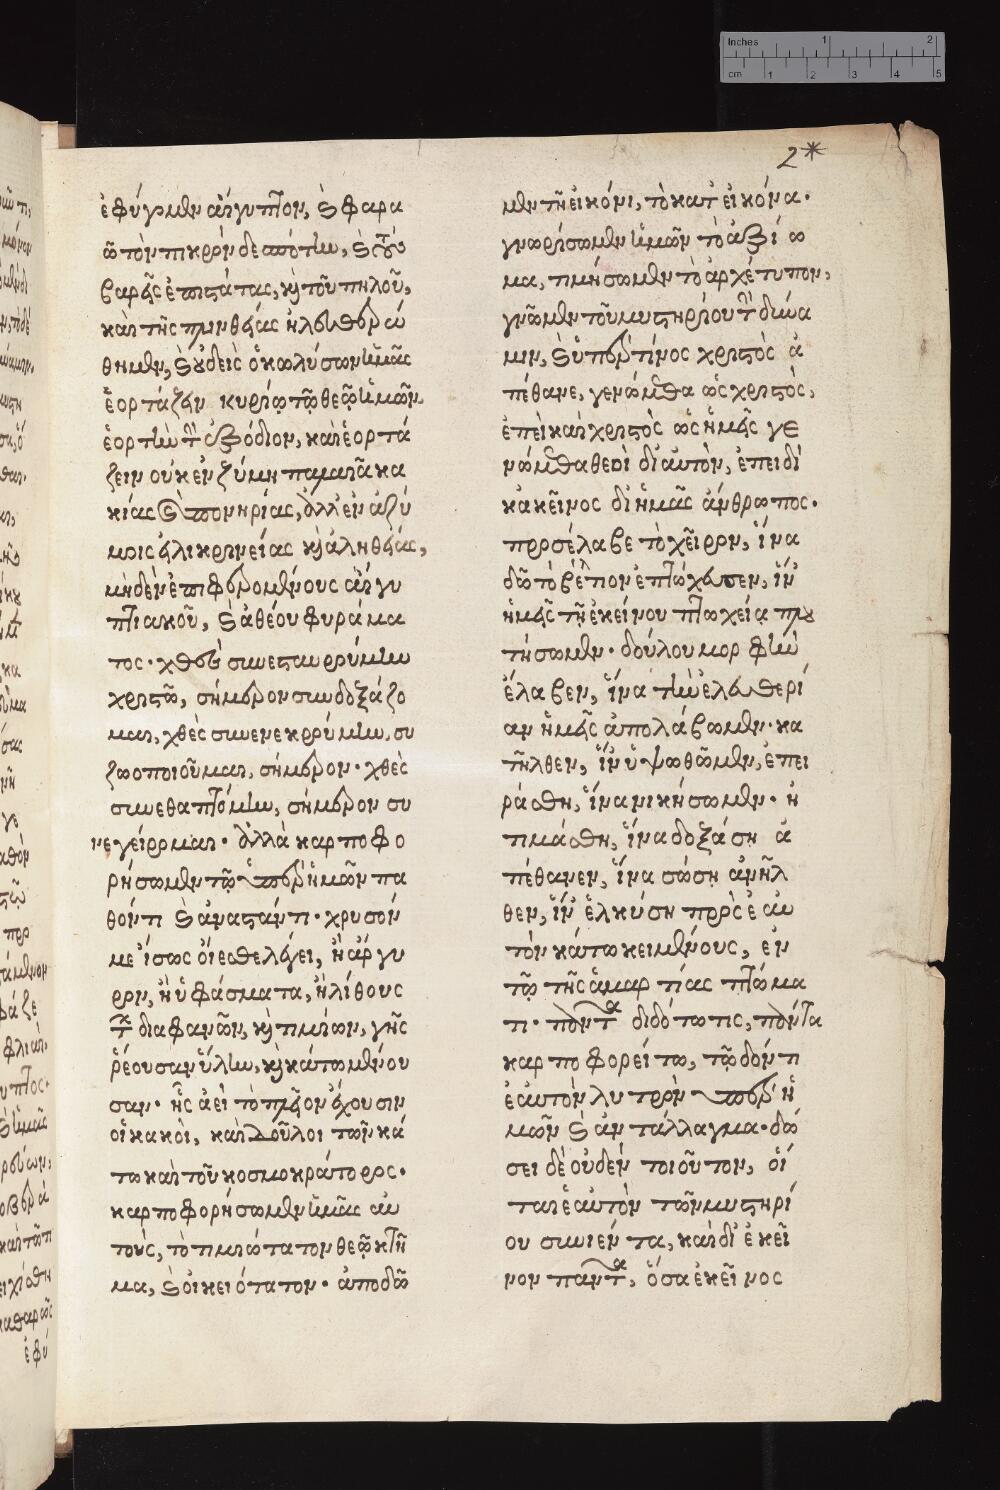 2*
ἐφύγομεν αἴγυπτον, καὶ φαρα
ὼ τὸν πικρὸν δεσπότην, καὶ τοὺς
βαρεῖς ἐπιστάτας, καὶ τοῦ πηλοῦ,
καὶ τῆς πλινθείας ἠλευθερώ
θημεν, καὶ οὐδεὶς ὁ κωλύσων ἡμᾶς
ἑορτάζειν κυρίῳ τῷ θεῷ ἡμῶν
ἑορτὴν τὴν ἐξόδιον, καὶ ἑορτά
ζειν οὐκ ἐν ζύμῃ παλαιᾶ κα
κίας καὶ πονηρίας, ἀλλ' ἐν ἀζύ
μοις εἰλικρινείας καὶ ἀληθείας,
μηδὲν ἐπιφερομένους αἰγυ
πτιακοῦ, καὶ ἀθέου φυράμα
τος· χθὲς συνεσταυρούμην
χριστῶ, σήμερον συνδοξάζο
μαι, χθὲς συνενεκρούμην, συ
ζωοποιοῦμαι, σήμερον· χθὲς
συνεθαπτόμην, σήμερον συ
νεγείρομαι· ἀλλὰ καρποφο
ρήσωμεν τῷ ὑπὲρ ἡμῶν πα
θόντι καὶ ἀναστάντι· χρυσόν
με ἴσως οἴεσθε λέγειν, ἢ ἄργυ
ρον, ἢ ὑφάσματα, ἢ λίθους
τῶν διαφανῶν, καὶ τιμίων, γῆς
ῥέουσαν ὕλην, καὶ κάτω μένου
σαν· ἧς ἀεὶ τὸ πλεῖον ἔχουσιν
οἱ κακοὶ, καὶ δοῦλοι τῶν κά
τω καὶ τοῦ κοσμοκράτορος·
καρποφορήσωμεν ἡμᾶς αὐ
τοὺς, τὸ τιμιώτατον θεῷ κτῆ
μα, καὶ οἰκειότατον· ἀποδῶ
μεν τῆ εἰκόνι, τὸ κατ' εἰκόνα·
γνωρίσωμεν ἡμῶν τὸ ἀξίω
μα, τιμήσωμεν τὸ ἀρχέτυπον,
γνῶμεν τοῦ μυστηρίου τὴν δύνα
μιν, καὶ ὑπὲρ τίνος χριστὸς ἀ
πέθανε, γενώμεθα ὡς χριστὸς,
ἐπεὶ καὶ χριστὸς ὡς ἡμεῖς γε
νώμεθα θεοὶ δι' αὐτὸν, ἐπειδὴ
κἀκεῖνος δι' ἡμᾶς ἄνθρωπος·
προσέλαβε τὸ χεῖρον, ἵνα
δῶ τὸ βέλτιον ἐπτώχευσεν, ἵν'
ἡμεῖς τῇ ἐκείνου πτωχείᾳ πλου
τήσωμεν· δούλου μορφὴν
ἔλαβεν, ἵνα τὴν ἐλευθερί
αν ἡμεῖς ἀπολάβωμεν· κα
τῆλθεν, ἵν' ὑψωθῶμεν, ἐπει
ράσθη, ἵνα νικήσωμεν· ἠ
τιμάσθη, ἵνα δοξάσῃ ἀ
πέθανεν, ἵνα σώσῃ ἀνῆλ
θεν, ἵν' ἑλκύσῃ πρὸς ἑαυ
τὸν κάτω κειμένους, ἐν
τῷ τῆς ἁμαρτίας πτώμα
τι· πάντα διδότω τις, πάντα
καρποφορείτω, τῷ δόντι
ἑαυτὸν λύτρον ὑπὲρ ἡ
μῶν καὶ ἀντάλλαγμα· δώ
σει δὲ οὐδὲν τοιοῦτον, οἷ
ται ἑαυτὸν τῶν μυστηρί
ου συνιέντα, καὶ δι' ἐκεῖ
νον πάντα, ὅσα ἐκεῖνος